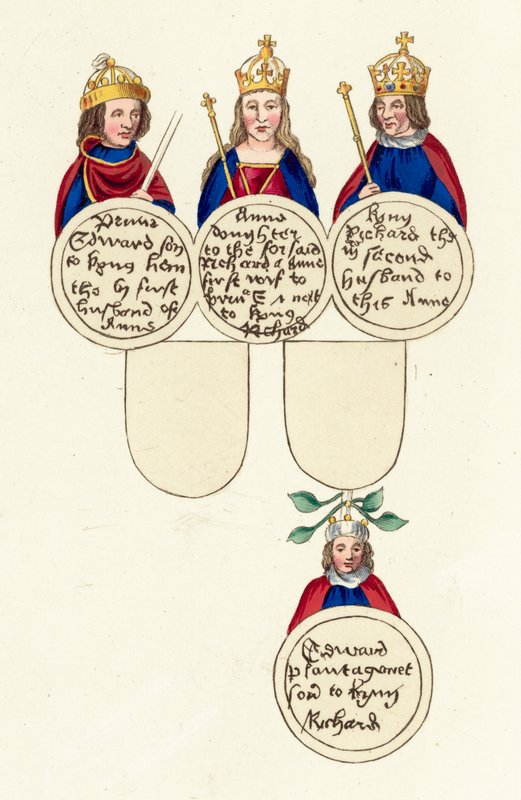 Prince
Edward son
to kyng henr
the 6 first
husband of
Anne
Anne
doughter
to the forsaid
Richard & Anne
first wif to
princ E & next
to kyng
Richard
Kyng
Richard the
iij second
husband to
this Anne
Edward
plantagenet
son to kyng
Richard